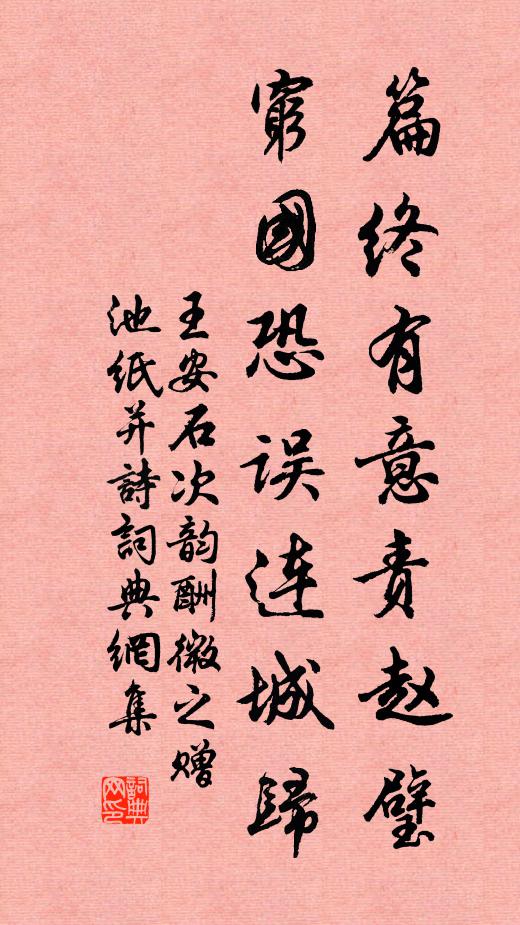 篇终有意责赵璧
窮國恐误连城歸
王安石次韵酬微之赠
池纸并詩詞典網集
詞典网印